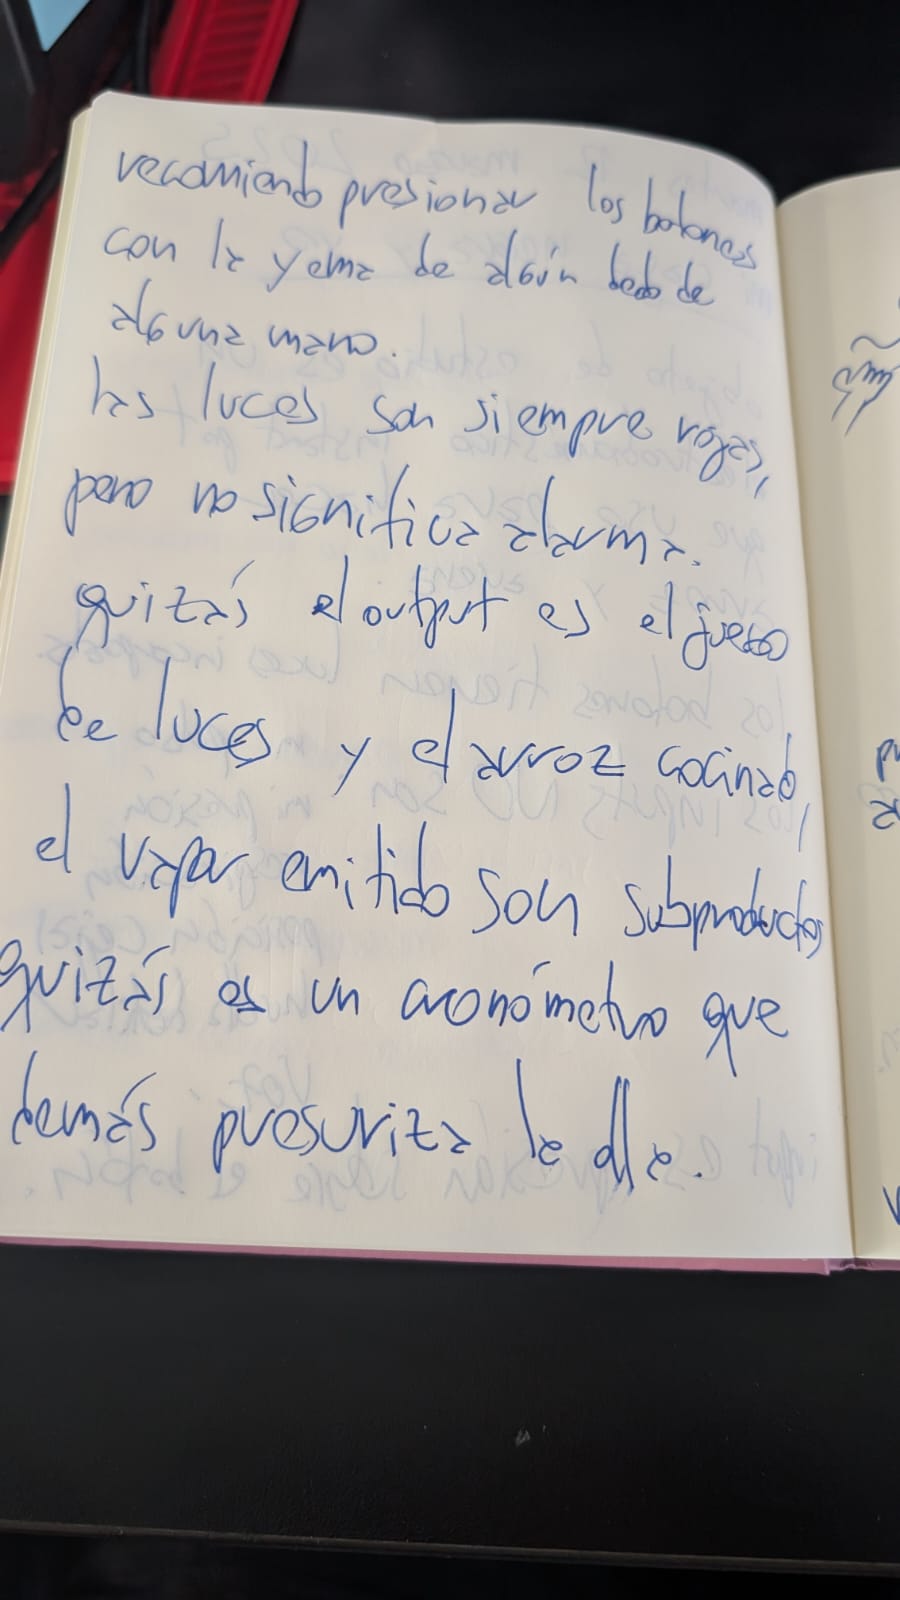 recomiendo presionar los botones
con la yema de algún dedo de
alguna mano.
las luces son siempre rojas,
pero no significa alarma.
quizás el output es el juego
de luces y el arroz cocinado,
el vapor emitido son subproductos
quizás es un cronómetro que
demás presuriza la olla.